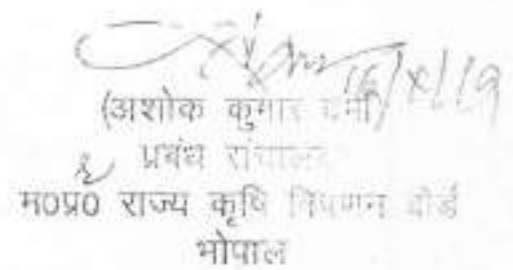 16/x/19
(अशोक कुमार वर्मा)
प्रबंध संचालक
म0प्र0 राज्य कृषि विपणन बोर्ड
भोपाल